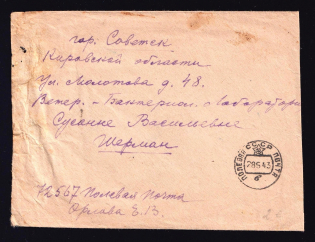 гор. Советск
Кировской области
Ул. Молотова д. 48.
Ветер. - Бактериол. - Лаборатор
Сусанне Васильевне
Шерман
СССР
ПОЛЕВАЯ ПОЧТА
28 5 43
б
12567 Полевая Почта
Орлова Е. В.